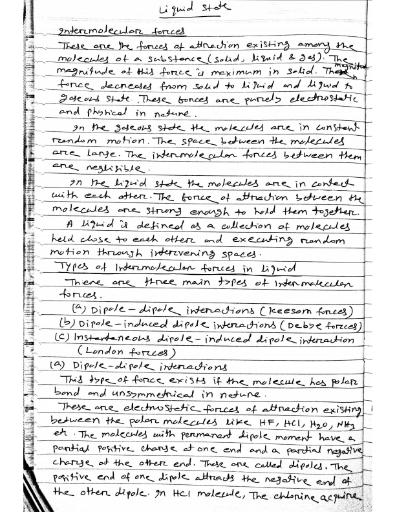 Liquid State
Intermolecular forces
These are the forces of attraction existing among the
molecules of a substance (solid, liquid & gas). The
magnitude of this force is maximum in solid. The magnitude
force decreases from solid to liquid and liquid to
gaseous state. These forces are purely electrostatic
and physical in nature.
In the gaseous state the molecules are in constant
random motion. The space between the molecules
are large. The intermolecular forces between them
are negligible.
In the liquid state the molecules are in contact
with each other. The force of attraction between the
molecules are strong enough to hold them together.
A liquid is defined as a collection of molecules
held close to each other and executing random
motion through intervening spaces.
Types of Intermolecular forces in liquid
There are three main types of Intermolecular
forces.
(a) Dipole - dipole interactions (Keesom forces)
(b) Dipole - induced dipole interactions (Debye forces)
(c) Instantaneous dipole - induced dipole interaction
(London forces)
(a) Dipole - dipole interactions
This type of force exists if the molecule has polar
bond and unsymmetrical in nature.
These are electrostatic forces of attraction existing
between the polar molecules like HF, HCl, H2O, NH3
etc. The molecules with permanent dipole moment have a
partial positive charge at one end and a partial negative
charge at the other end. These are called dipoles. The
positive end of one dipole attracts the negative end of
the other dipole. In HCl molecule, The chlorine acquire